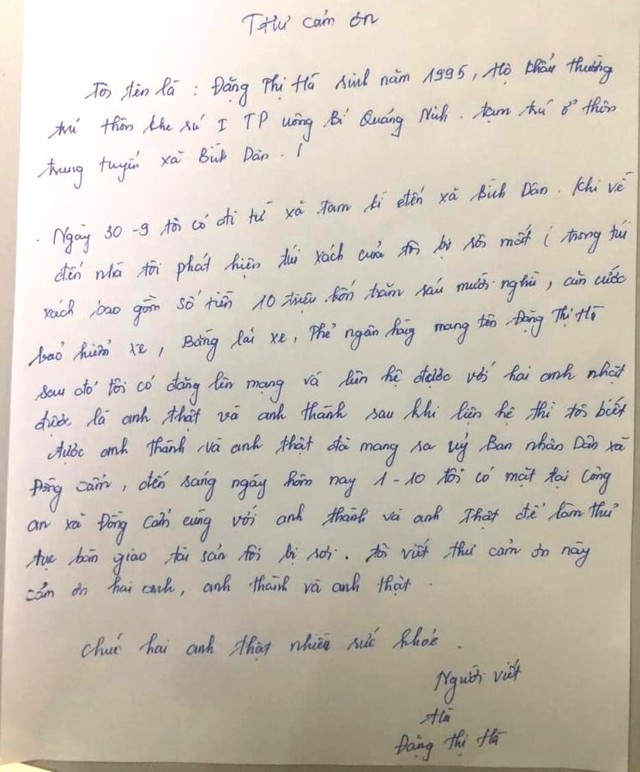 Thư cảm ơn
Tôi tên là : Đặng Thị Hà sinh năm 1995, Hộ khẩu thường
trú thôn khe sú I TP uông Bí Quảng Ninh. tạm trú ở thôn
trung tuyến xã Bình Dân. /
. Ngày 30-9 tôi có đi từ xã tam kì đến xã Bình Dân. Khi về
đến nhà tôi phát hiện túi xách của tôi bị rơi mất ( trong túi
xách bao gồm số tiền 10 triệu bốn trăm sáu mươi nghìn, căn cước
bảo hiểm xe, Bằng lái xe, Thẻ ngân hàng mang tên Đặng Thị Hà
sau đó tôi có đăng lên mạng và liên hệ được với hai anh nhặt
được là anh thật và anh thành sau khi liên hệ thì tôi biết
được anh thành và anh thật đã mang ra uỷ Ban nhân Dân xã
Đồng Cẩm, đến sáng ngày hôm nay 1-10 tôi có mặt tại Công
an xã Đồng Cẩm cùng với anh thành và anh Thật để làm thủ
tục bàn giao tài sản tôi bị rơi. tôi viết thư cảm ơn này
cảm ơn hai anh, anh thành và anh thật.
chúc hai anh thật nhiều sức khỏe.
Người viết
Hà
Đặng thị Hà